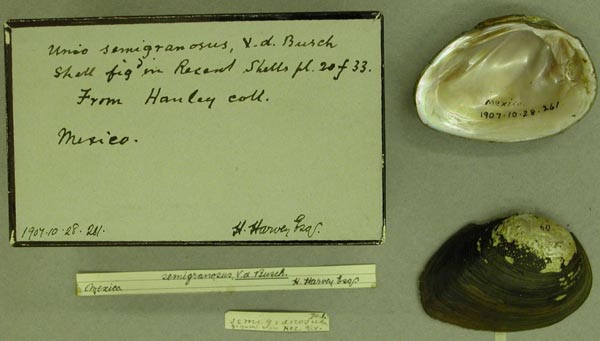 Unio semigranosus, V.d. Busch
Shell figd in Recent Shells pl. 20 f 33.
From Hanley coll.
Mexico.
1907·10·28·261.
H. Harvey Esqr.
Mexico.
1907·10·28·261
semigranosus, V.d. Busch.
Mexico
H. Harvey Esqr.
semigranosus